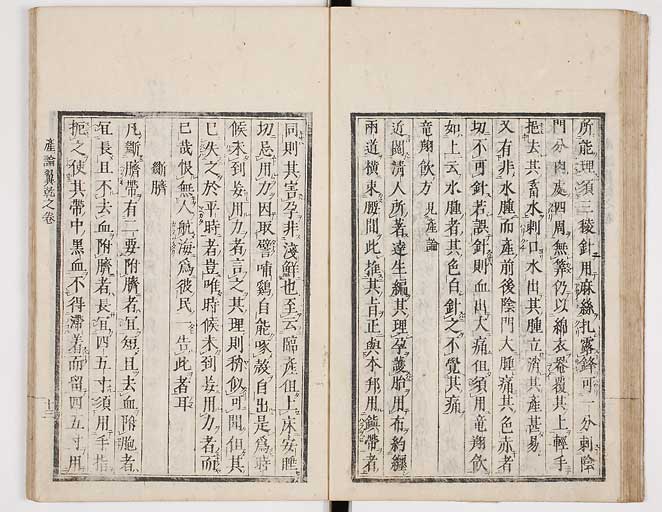 所能理須三稜針用麻絲扎露鋒可一分刺陰
門分肉處四周無算仍以綿衣罨覆其上輕手
挹去其畜水刺口水出其腫立消其產甚易
又有非水腫而產前後陰門大腫痛其色赤者
切不可針若誤針則血出大痛但須用竜翔飲
如上云水腫者其色白針之不覺其痛
竜翔飲方 見產論
近閱清人所著達生編其理孕護胎用布約纏
兩道横束腰間此推其旨正與本邦用鎮帶者
同則其害孕非淺鮮也至云臨產但上床安睡
切忌用力因取譬哺鷄自能啄殼自出是為時
候未到妄用力者言之其理則稍似可間但其
已失之於平時者豈唯時候未到妄用力者而
已哉恨無人航海為彼民一告此者耳
斷臍
凡斷臍帶有二要附臍者宜短且去血附胞者
宜長且不去血附臍者長宜四五寸須用手指
扼之使其帶中黒血不得滯着而留四五寸用
產論翼乾之卷
十三